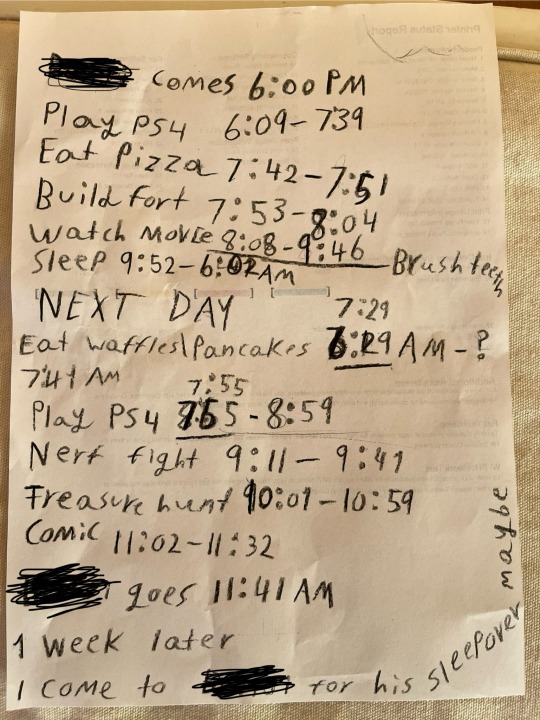 Comes 6:00 PM
Play PS4 6:09-739
Eat Pizza 7:42-7:51
Build fort 7:53-8:04
Watch Movie 8:08-9:46
Sleep 9:52-6:02 AM Brush teeth
NEXT DAY
7:29
Eat waffles\Pancakes AM-?
7:41 AM
7:55
Play PS4 - 8:59
Nerf fight 9:11-9:41
Treasure hunt 10:01-10:59
Comic 11:02-11:32
goes 11:41 AM
1 week later
I come to for his sleepover maybe